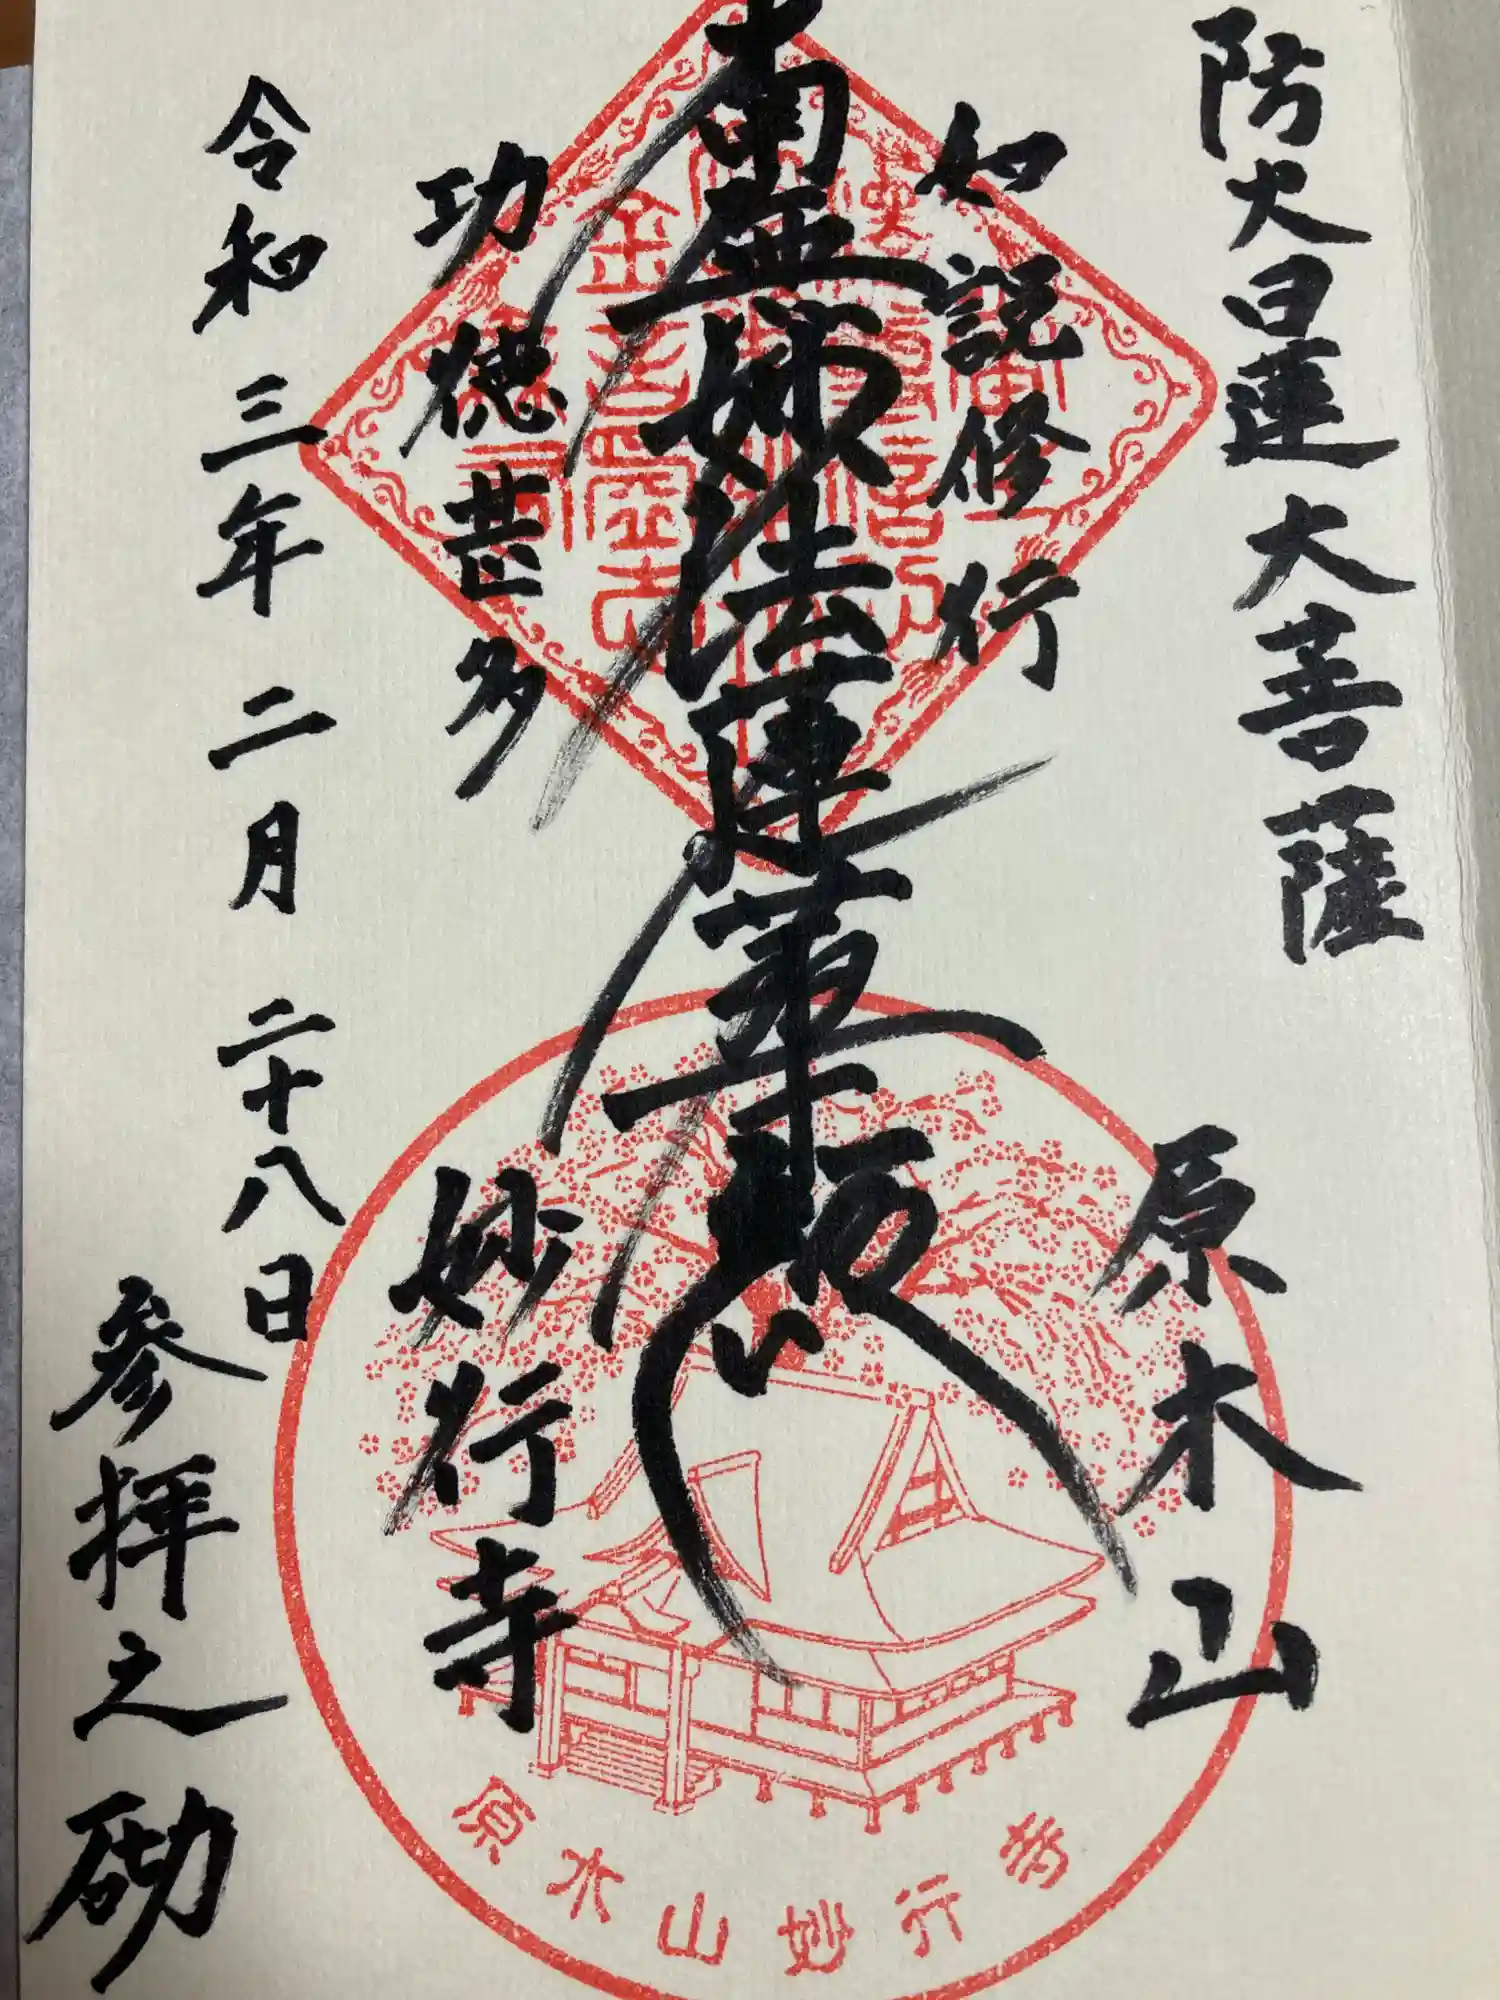 防火日蓮大菩薩
原木山
如説修行
南無妙法蓮華経
功徳甚多
妙行寺
令和三年二月二十八日
参拝之砌
原木山妙行寺